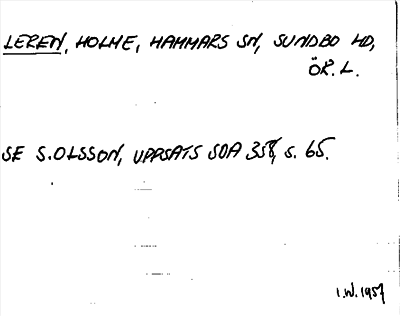 LEREN, HOLME, HAMMARS SN, SUNDBO HD,
ÖR. L.
SE S. OLSSON, UPPSATS SOA 358, S. 65.
I.W. 1957